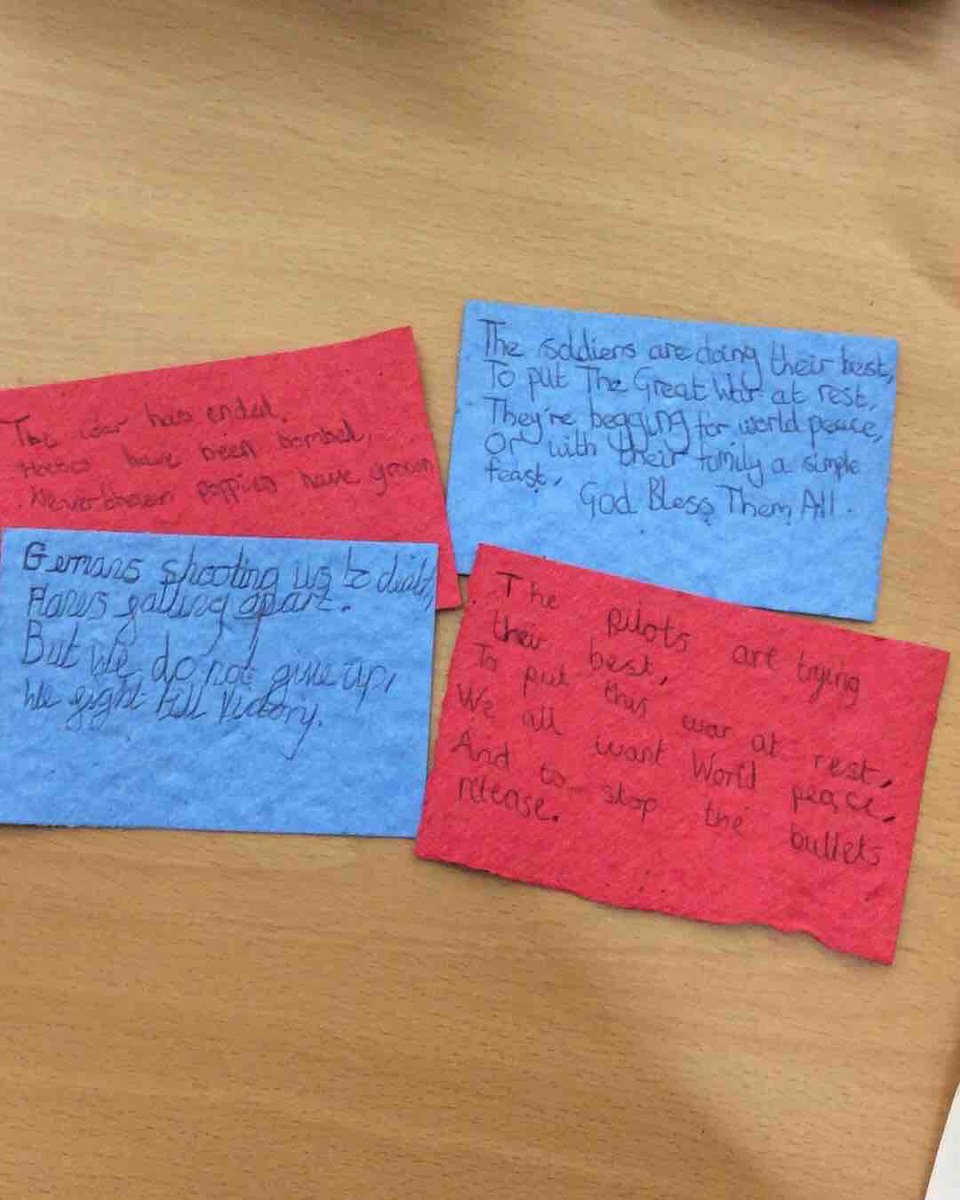 The war has ended.
Houses have been bombed,
Nevertheless poppies have grown
The soldiers are doing their best,
To put The Great War at rest,
They're begging for world peace,
Or with their family a simple
feast,
God Bless Them All.
Germans shooting us to
Planes falling apart.
But we do not give up,
We fight till victory.
The pilots are trying
their best,
To put this war at rest,
We all want World peace,
And to stop the bullets
release.